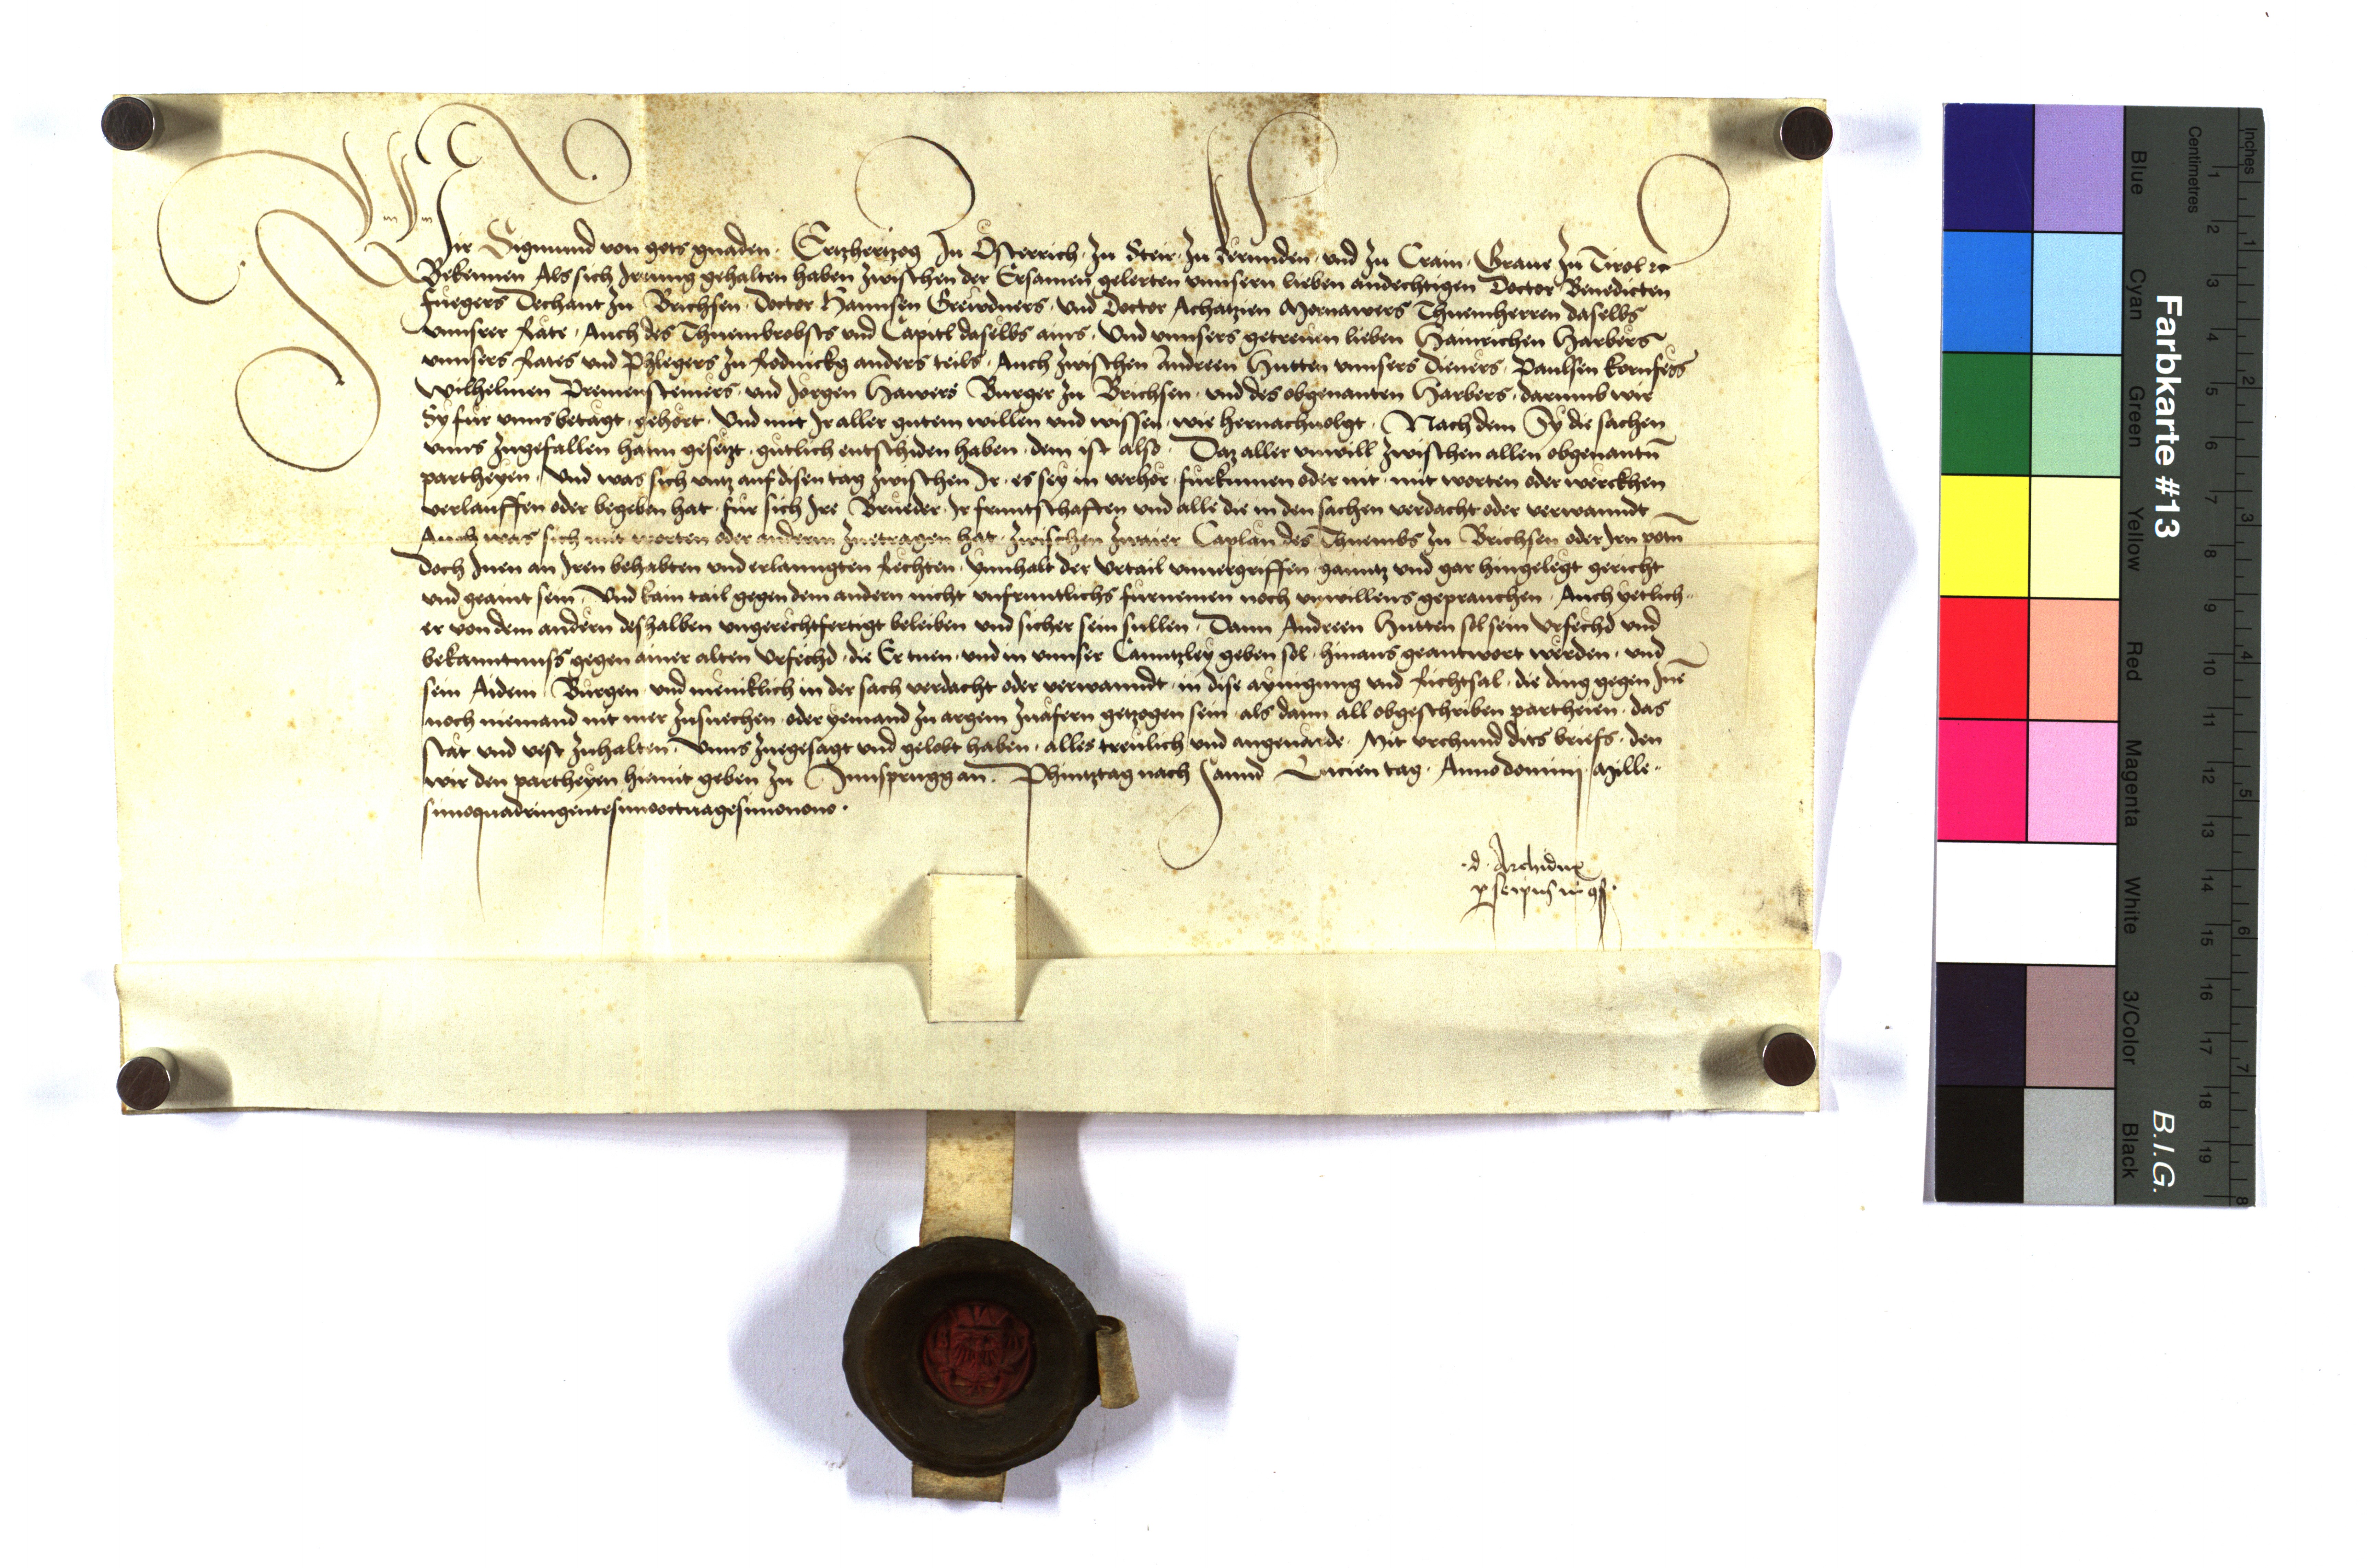 Wir Sigmund von gots gnaden · Ertzhertzog zu Österrich · zu Steir · zu Kernnden · und zu Crain · Graue zu Tirol ꝛc
Bekennen Als sich Irrung gehalten haben zwischen der Ersamen gelerten unnsern lieben andechtigen Doctor Benedicten
Fuegers Dechant zu Brichsen · Doctor Hannsen Greudners · und Doctor Achatzien Mornawers Thuemherren daselbs
unnserer Räte · Auch des Thuembrobsts und Capitl daselbs ains · Und unnsers getreuen lieben Hainrichen Harbers
unnsers Rates und Phlegers zu Rodnickg anders teils · Auch zwischen Andreen Hutten unnsers Dieners · Paulsen Kornfeils
Wilhelmen Bremensteiners · und Jorgen Hawers Burger zu Brichsen · und des obgenanten Harbers · darumb wir
Sy fur unns betagt · gehört · Und mit Ir aller gutem willen und wissen · wie hernachuolgt · Nach dem Sy die sachen
unns zugefallen hann gesetzt · gütlich entschiden haben · dem ist also · Daz aller unwill zwischen allen obgenantn̄
partheyen · Und was sich untz auf disen tag zwischen Ir · es sey in verhör · fürkumen oder nit · mit worten oder werckhen
verlauffen oder begeben hat · für sich Ire Brueder · Ir fruntschaften und alle die in den sachen verdacht oder verwanndt
Auch was sich mit worten oder anderm zuetragen hat · zwischen zwaier Caplän des Thuembs zu Brichsen oder Irn potn̄
Doch Inen an Iren behabten und erlanngten Rechten · ynnhalt der Urtail unuergriffen · ganntz und gar hingelegt gericht
und geaint sein · Und kain tail gegen dem andern nicht unfruntlichs fürnemen noch unwillens geprauchen · Auch yetlich-
er von dem andern deshalben ungerechtfertigt beleiben und sicher sein sullen · Dann Andreen Hutten sol sein Urfechd und
bekanntnuss gegen ainer alten Urfechd · die Er tuen · und in unnser Canntzley geben sol · hinaus geantwort werden · und
sein Aidem · Burgen · und meniklich in der sach verdacht oder verwanndt · in dise aynigung und Richtsal · die ding gegen Inē
noch niemand nit mer zusuechen · oder yemand zu argem zuäfern getzogen sein · als dann all obgeschriben partheien · das
stät und vest zuhalten · Unns zuegesagt und gelobt haben · alles treulich und angeuärde · Mit urchund dits briefs · den
wir den partheyen hiemit geben zu Innsprugg an · Phintztag nach Sannd Lucien tag · Anno domini · Mille-
simoquadringentesimooctuagesimonono ·
· d · Archidux
p seipm̄ in gs̄ ·
Farbkarte #13
B.I.G.
Inches
Centimetres
Blue
Cyan
Green
Yellow
Red
Magenta
White
3/Color
Black
1 2 3 4 5 6 7 8 9 10 11 12 13 14 15 16 17 18 19
1 2 3 4 5 6 7 8